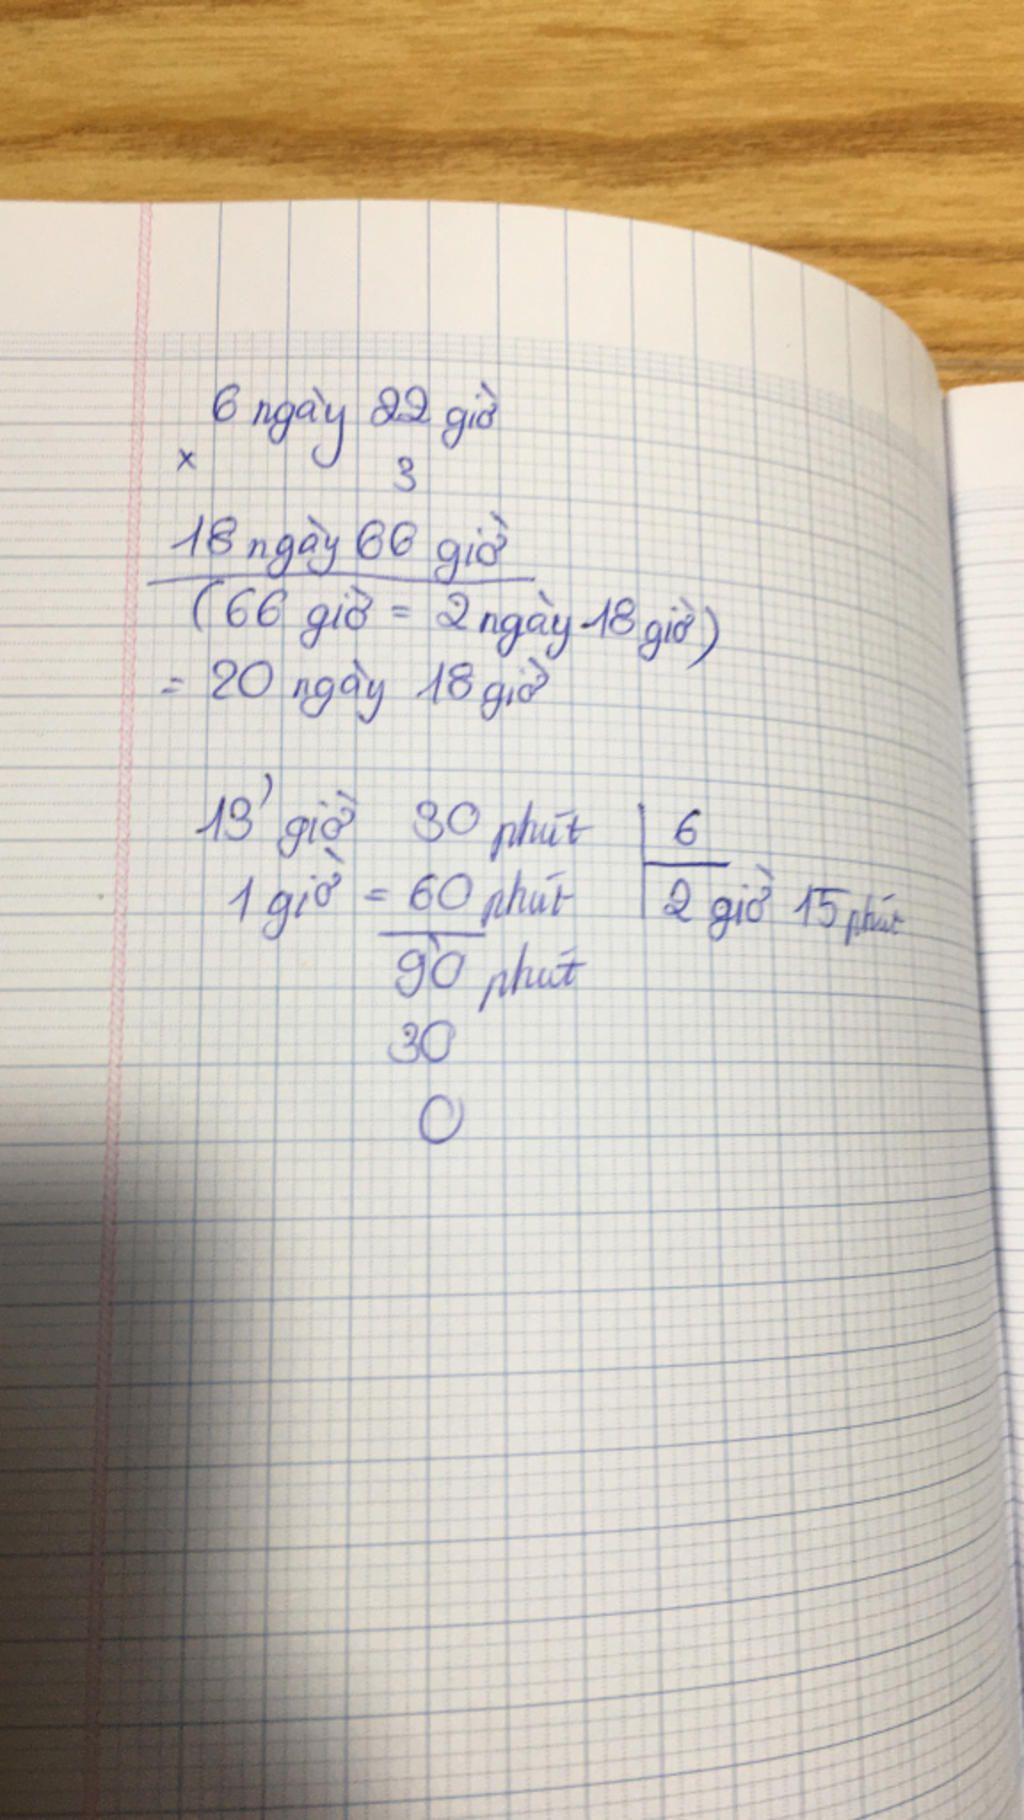 6 ngày 22 giờ
× 3
18 ngày 66 giờ
(66 giờ = 2 ngày 18 giờ)
= 20 ngày 18 giờ
13 giờ 30 phút 6
1 giờ = 60 phút 2 giờ 15 phút
90 phút
30
0